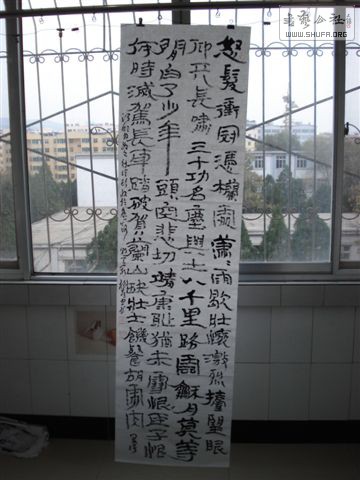 書法公社
WWW.SHUFA.ORG
怒髮衝冠憑欄處瀟瀟雨歇壯懷激烈擡望眼
仰天長嘯三十功名塵與土八千里路雲龢月莫等
閒白了少年頭空悲切靖康恥猶未雪臣子恨
何時滅駕長車踏破賀蘭山缺壯士饑餐胡虜肉